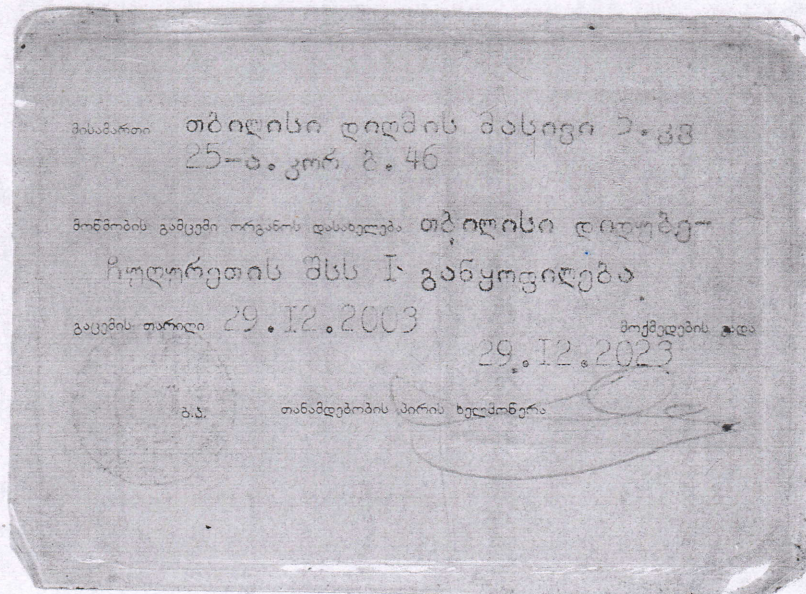 მისამართი თბილისი დიღმის მასივი 5.კვ
25-ა. კორ ბ. 46
მოწმობის გამცემი ორგანოს დასახელება თბილისი დიდუბე-
ჩუღურეთის შსს I განყოფილება
გაცემის თარიღი 29.I2.2003 მოქმედების ვადა
29.I2.2023
ბ.ა. თანამდებობის პირის ხელმოწერა